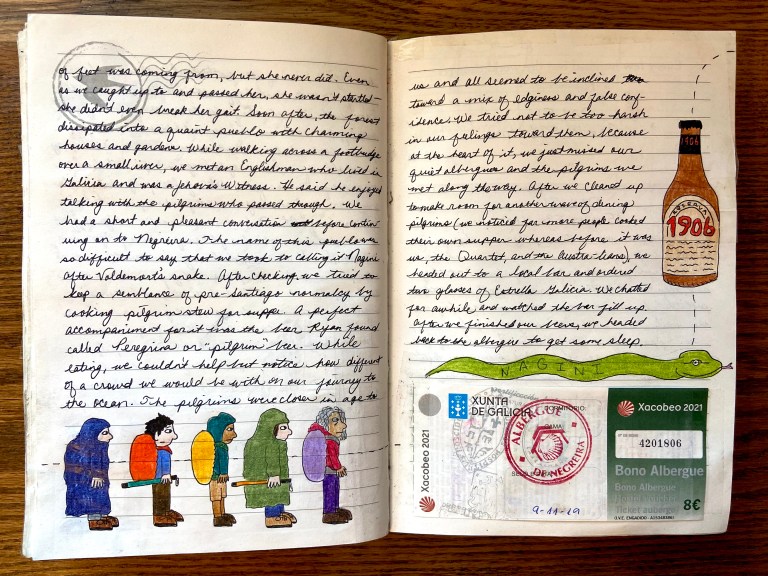 of feet was coming from, but she never did. Even
as we caught up to and passed her, she wasn't startled—
she didn't even break her gait. Soon after, the forest
dissipated into a quaint pueblo with charming
houses and gardens. While walking across a footbridge
over a small river, we met an Englishman who lived in
Galicia and was a Jehova's Witness. He said he enjoyed
talking with the pilgrims who passed through. We
had a short and pleasant conversation before contin-
uing on to Negreira. The name of this pueblo was
so difficult to say that we took to calling it Nagini
after Valdemort's snake. After checking, we tried to
keep a semblance of pre-Santiago normalcy by
cooking pilgrim stew for supper. A perfect
accompaniment for it was the beer Ryan found
called Peregrina or "pilgrim" beer. While
eating, we couldn't help but notice how different
of a crowd we would be with on our journey to
the ocean. The pilgrims were closer in age to
us and all seemed to be inclined
toward a mix of edginess and false con-
fidence. We tried not to be too harsh
in our feelings toward them, because
at the heart of it, we just missed our
quiet albergues and the pilgrims we
met along the way. After we cleaned up
to make room for another wave of dining
pilgrims (we noticed far more people cooked
their own supper whereas before it was
us, the Quartet, and the Australians), we
headed out to a local bar and ordered
two glasses of Estrella Galicia. We chatted
for awhile and watched the bar fill up.
After we finished our beers, we headed
back to the albergue to get some sleep.
1906
RESERVA
1906
NAGINI
Xacobeo 2021
XUNTA
DE GALICIA
CAMA
ALBERGUE
DE NEGREIRA
9-11-19
Xacobeo 2021
4201806
Bono Albergue
Bono Albergue
Ticket auberge
8€